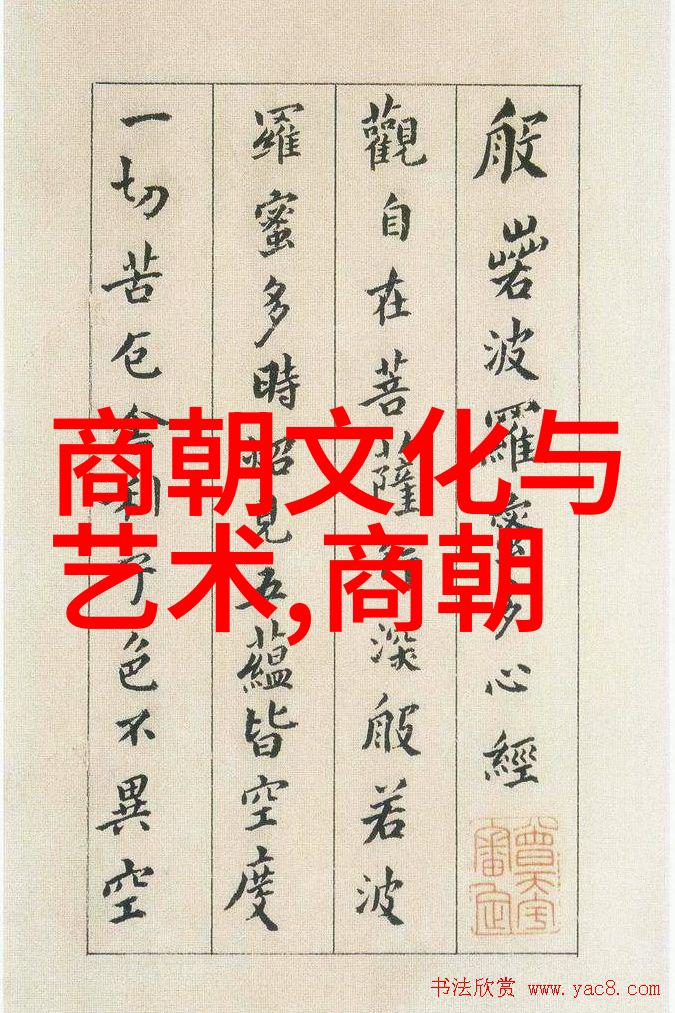 般若波羅蜜多心經
觀自在菩薩行深般若波
羅蜜多時照見五蘊皆空度
一切苦厄舍利子色不異空
商朝文化与
艺术,商朝
书法欣赏 www.yac8.com